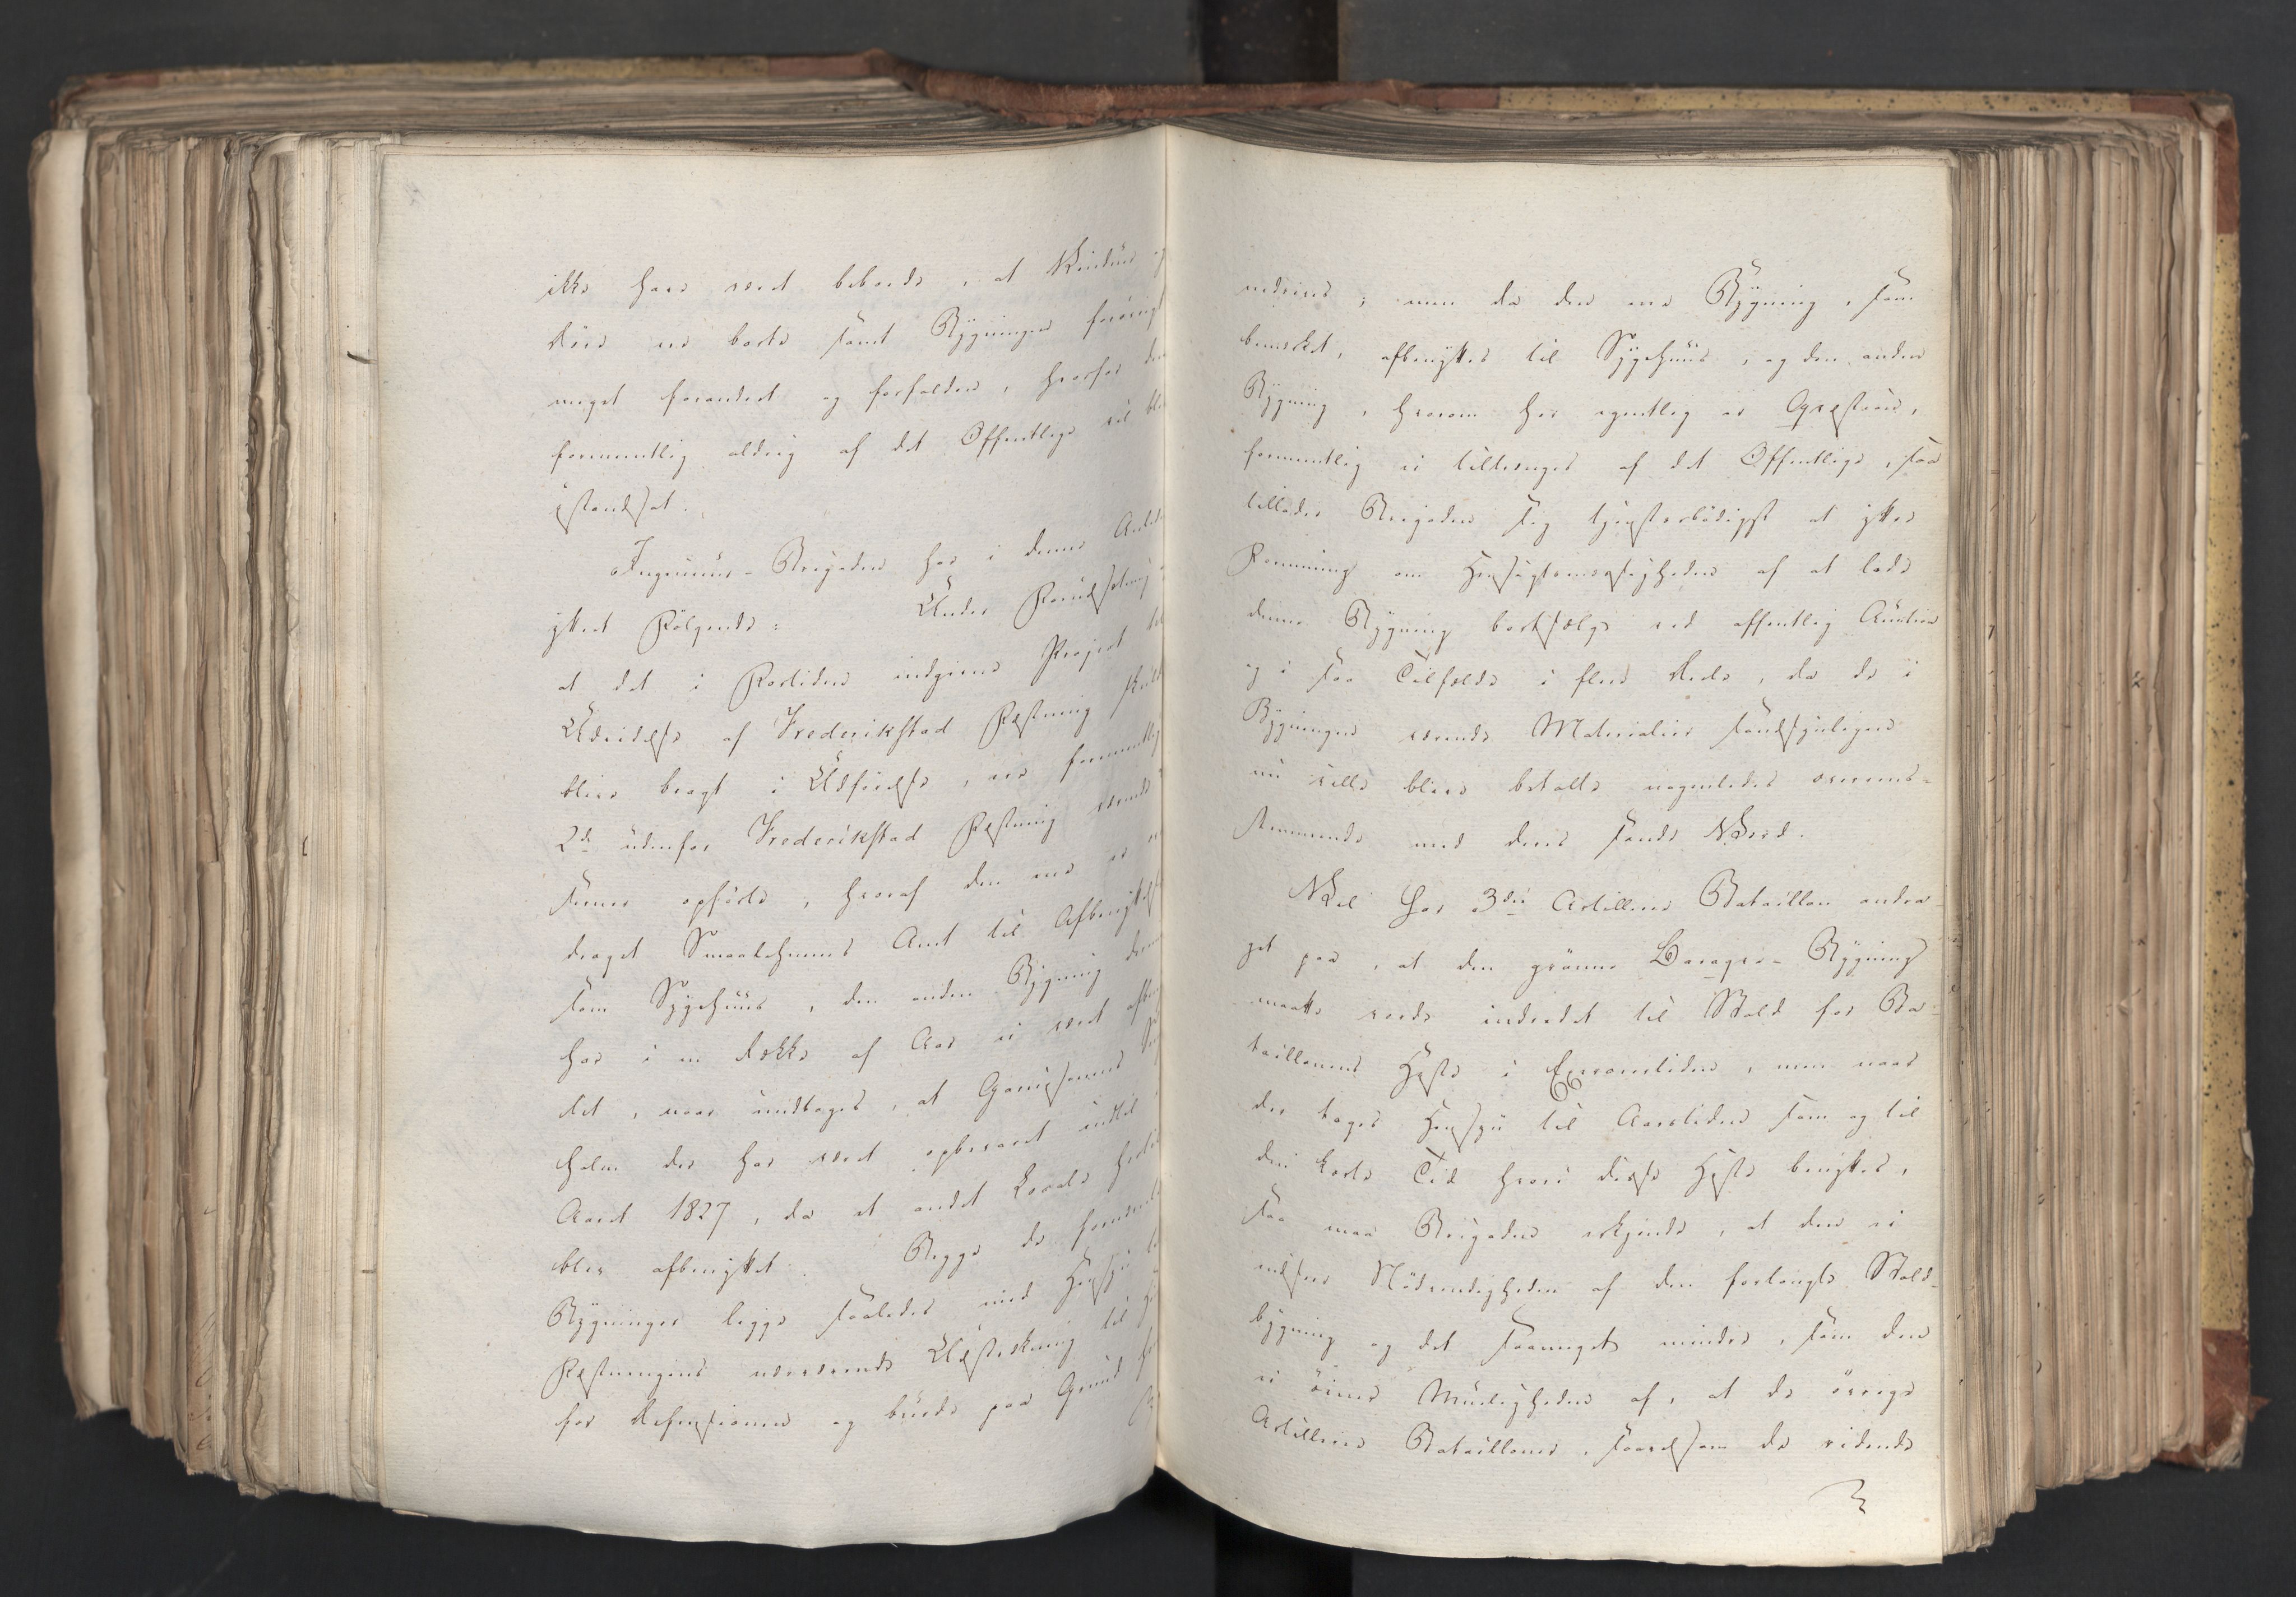 ikke have været beboede, at Vinduer og
Döre ere borte samt Bygningen forövrigt
meget forandret og forfalden, hvorfor den
formeentlig aldrig af det Offentlige vil blive
istandsat.
Ingenieur-Brigaden har i denne Anled
yttret Følgende: Under Forudsætning
at det i Fortiden indgivne Project til
Udvidelse af Frederikstad Fæstning skulde
blive bragt i Udförelse, ere formeentlig
2de udenfor Frederikstad Fæstning værende
opförte, hvoraf den ene er
draget Smaalehnenes Amt til Afbenyttelse
som Sygehuus, den anden Bygning
har i en Række af Aar ei været afben
det, naar undtages, at Garnisonens
halm der har været opbevaret indtil
Aaret 1827, da et andet Locale hertil
blev afbenyttet. Begge de
Bygninger ligge saaledes med Hensyn til
Fæstningens nuværende Udstrekning til
for Defensionen og burde paa Grund
nedrives; men da den ene Bygning, som
bemerket, afbenyttes til Sygehuus, og den anden
Bygning, hvorom her egentlig er Qvæstion,
formeentlig ei tiltrænges af det Offentlige, saa
tillader Brigaden sig tjenstskyldigst at yttre
Formening om Hensigtsmæssigheden af at lade
denne Bygning bortsælge ved offentlig Auction
og i saa Tilfælde i flere Dele, da de i
Bygningen værende Materialier sandsynligen
nu ville blive betalte nogenledes overeens-
stemmende med deres sande Værd.
Vel har 3die Artillerie Bataillon andra-
get paa, at den grönne Baraque-Bygning
maatte vorde indredet til Stald for Ba-
taillonens Heste i Exerceertiden, men naar
der tages Hensyn til Aarstiden som og til
den korte Tid hvori disse Heste benyttes,
saa maa Brigaden erkjende, at den ei
indseer Nödvendigheden af den forlangte Stald-
bygning og det saameget mindre, som den
ei öiner Mueligheden af, at de övrige
Artillerie Batailloner, saavelsom de ridende